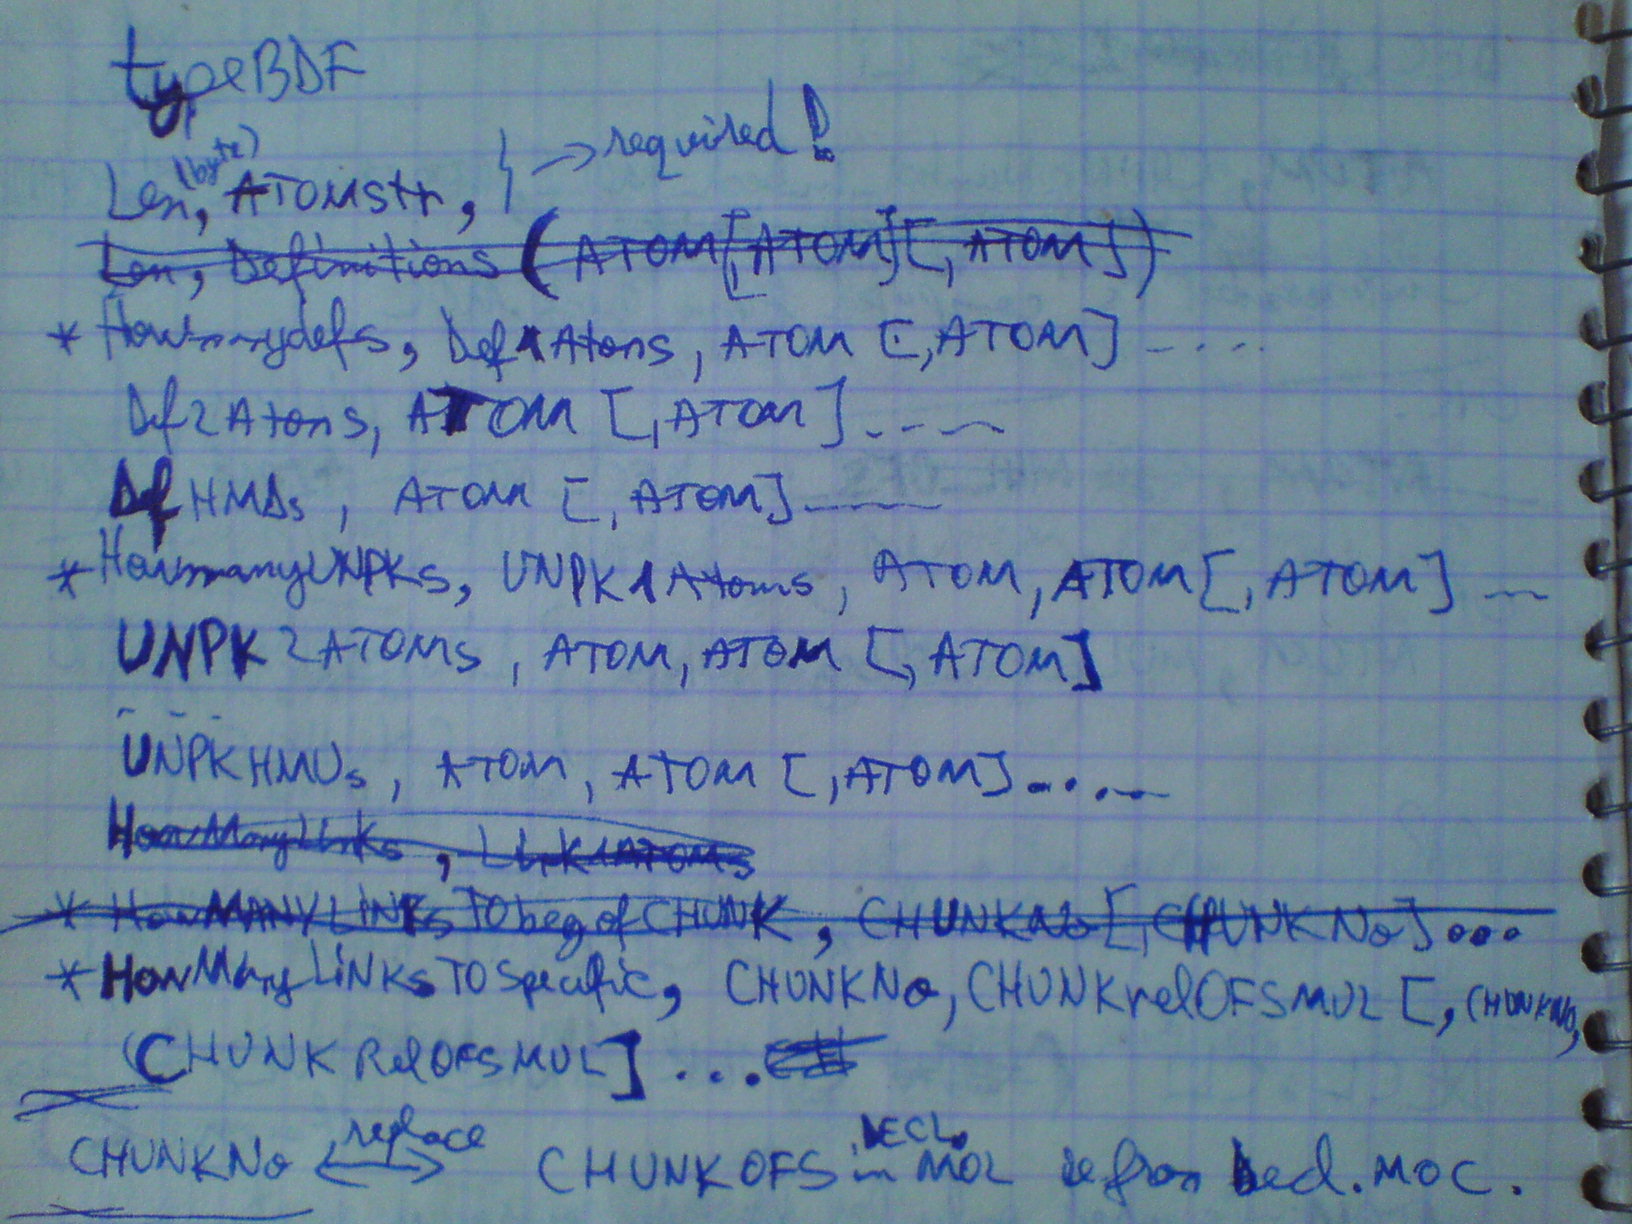 typeBDF
Len(byte), ATOMstr, } → required!
Len, Definitions (ATOM[,ATOM][,ATOM])
* Howmanydefs, Def1Atoms, ATOM [,ATOM] ....
Def2Atoms, ATOM [,ATOM] ....
DefHMDs, ATOM [,ATOM] ....
* HowmanyUNPKs, UNPK1Atoms, ATOM, ATOM[,ATOM] ...
UNPK2ATOMs, ATOM, ATOM [,ATOM]
...
UNPKHMUs, ATOM, ATOM [,ATOM] .....
HowManyLinks, Link1Atoms
* HowMANYLINKs TO beg of CHUNK, CHUNKNo[,CHUNKNo]...
* HowMany LiNKs TO Specific, CHUNKNo, CHUNKrelOFSMUL [, CHUNKNo,
CHUNKRelOFSMUL] ...
CHUNKNo replace ↔ CHUNKOFS in DECL. MOL